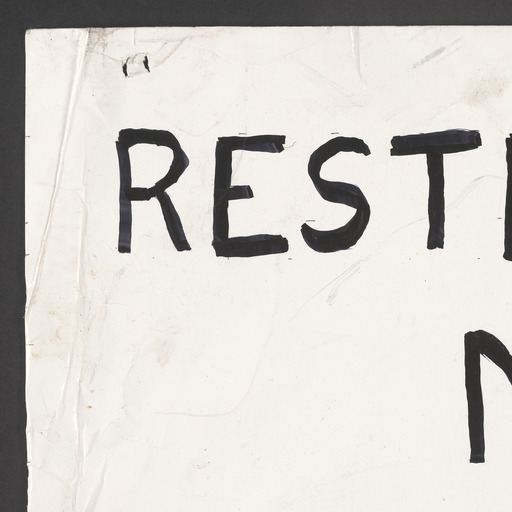 REST
N